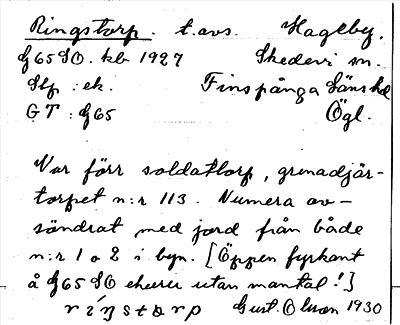 Ringstorp. t. avs. Hageby.
G65SO. kb 1927 Skedevi sn.
Stp : ek. Finspånga Länshd
GT : G65 Ögl.
Var förr soldattorp, grenadjär-
torpet n:r 113. Numera av-
söndrat med jord från både
n:r 1 o 2 i byn. [Öppen fyrkant
å G65SO ekerier utan mantal!]
ríŋstɔrp Gust. O 1930